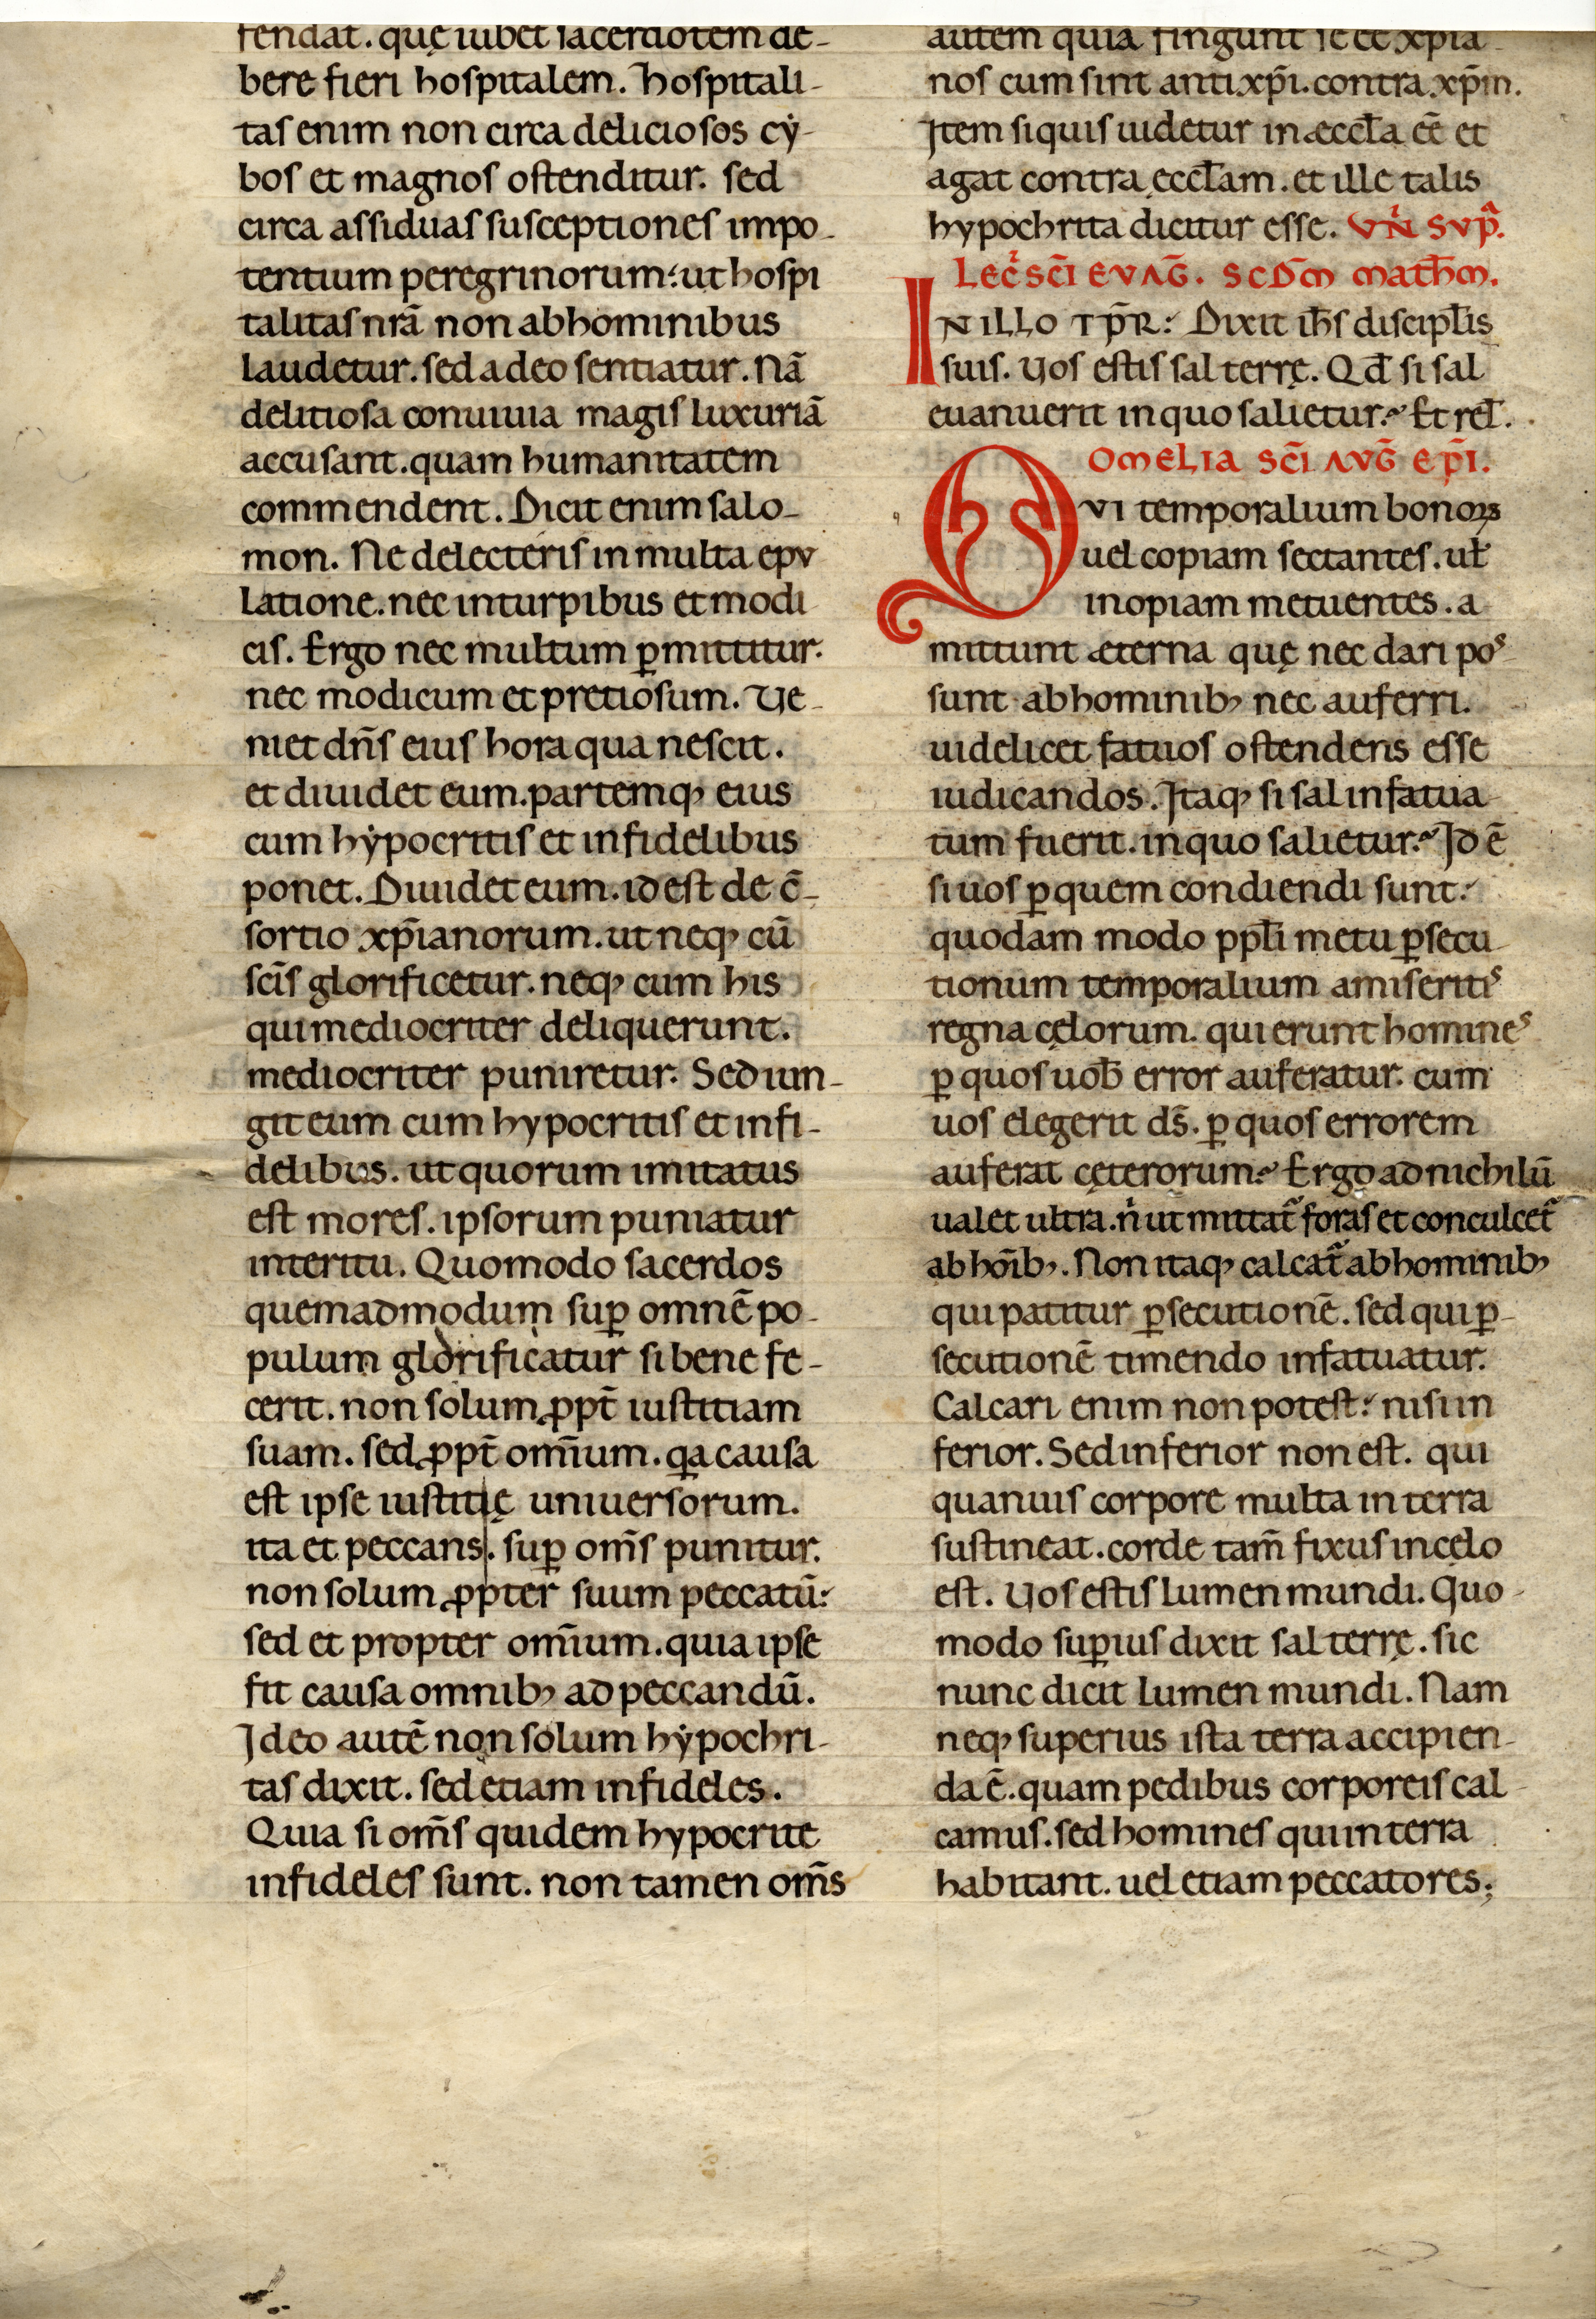 fendat. quę iubet sacerdotem de-
bere fieri hospitalem. hospitali-
tas enim non circa deliciosos cẏ-
bos et magnos ostenditur. sed
circa assiduas susceptiones impo-
tentium peregrinorum: ut hospi
talitas nr̄a non ab hominibus
laudetur. sed a deo sentiatur. Nā
delitiosa conuiuia magis luxuriā
accusant. quam humanitatem
commendent. Dicit enim salo-
mon. Ne delecteris in multa epv
latione. nec in turpibus et modi
cis. Ergo nec multum ꝑmittitur.
nec modicum et pretiosum. Ve-
niet dn̄s eius hora qua nescit.
et diuidet eum. partemqꝫ eius
cum hẏpocritis et infidelibus
ponet. Diuidet eum. id est de c̄-
sortio xp̄ianorum. ut neqꝫ cū
sc̄is glorificetur. neqꝫ cum his
qui mediocriter deliquerunt.
mediocriter puniretur. Sed iun-
git eum cum hypocritis et infi-
delibus. ut quorum imitatus
est mores. ipsorum puniatur
interitu. Quomodo sacerdos
quemadmodum suꝑ omnē po-
pulum glorificatur si bene fe-
cerit. non solum ꝓpt̄ iustitiam
suam. sed ꝓpt̄ om̄ium. qa causa
est ipse iustitię uniuersorum.
ita et peccans. suꝑ om̄s punitur.
non solum ꝓpter suum peccatū:
sed et propter om̄ium. quia ipse
fit causa omnibꝫ ad peccandū.
Ideo autē non solum hẏpochri-
tas dixit. sed etiam infideles.
Quia si om̄s quidem hypocrite
infideles sunt. non tamen om̄s
autem quia fingunt se eē xp̄ia-
nos cum sint antixp̄i. contra xp̄m.
Item si quis uidetur in æccl̄a eē et
agat contra ęccl̄am. et ille talis
hypochrita dicitur esse. VN̄ SVP̄ᵃ.
LEC̄ SC̄I EVAḠ. SCD̄M MATH̄M.
IN ILLO TP̄R: Dixit ih̄s discipl̄is
suis. Vos estis sal terrę. Qđ si sal
euanuerit in quo salietur? Et rel̄.
OMELIA SC̄I AVḠ EP̄I.
QVI temporalium bonoꝝ
uel copiam sectantes. ul̄
inopiam metuentes. a
mittunt æterna quę nec dari pos-
sunt ab hominibꝫ nec auferri.
uidelicet fatuos ostendens esse
iudicandos. Itaqꝫ si sal infatua-
tum fuerit. in quo salietur? Id ē
si uos ꝑ quem condiendi sunt:
quodam modo ppl̄i metu ꝑsecu-
tionum temporalium amiseritis
regna cęlorum. qui erunt homines
ꝑ quos uob̄ error auferatur. cum
uos elegerit ds̄. ꝑ quos errorem
auferat cęterorum? Ergo ad nichilū
ualet ultra. n̍ ut mittat᷑ foras et conculcet᷑
ab hōibꝫ. Non itaqꝫ calcat᷑ ab hominibꝫ
qui patitur ꝑsecutionē. sed qui ꝑ-
secutionē timendo infatuatur.
Calcari enim non potest: nisi in
ferior. Sed inferior non est. qui
quanuis corpore multa in terra
sustineat. corde tam̄ fixus in cęlo
est. Vos estis lumen mundi. Quo-
modo suꝑius dixit sal terrę. sic
nunc dicit lumen mundi. Nam
neqꝫ superius ista terra accipien-
da ē. quam pedibus corporeis cal-
camus. sed homines qui in terra
habitant. uel etiam peccatores;